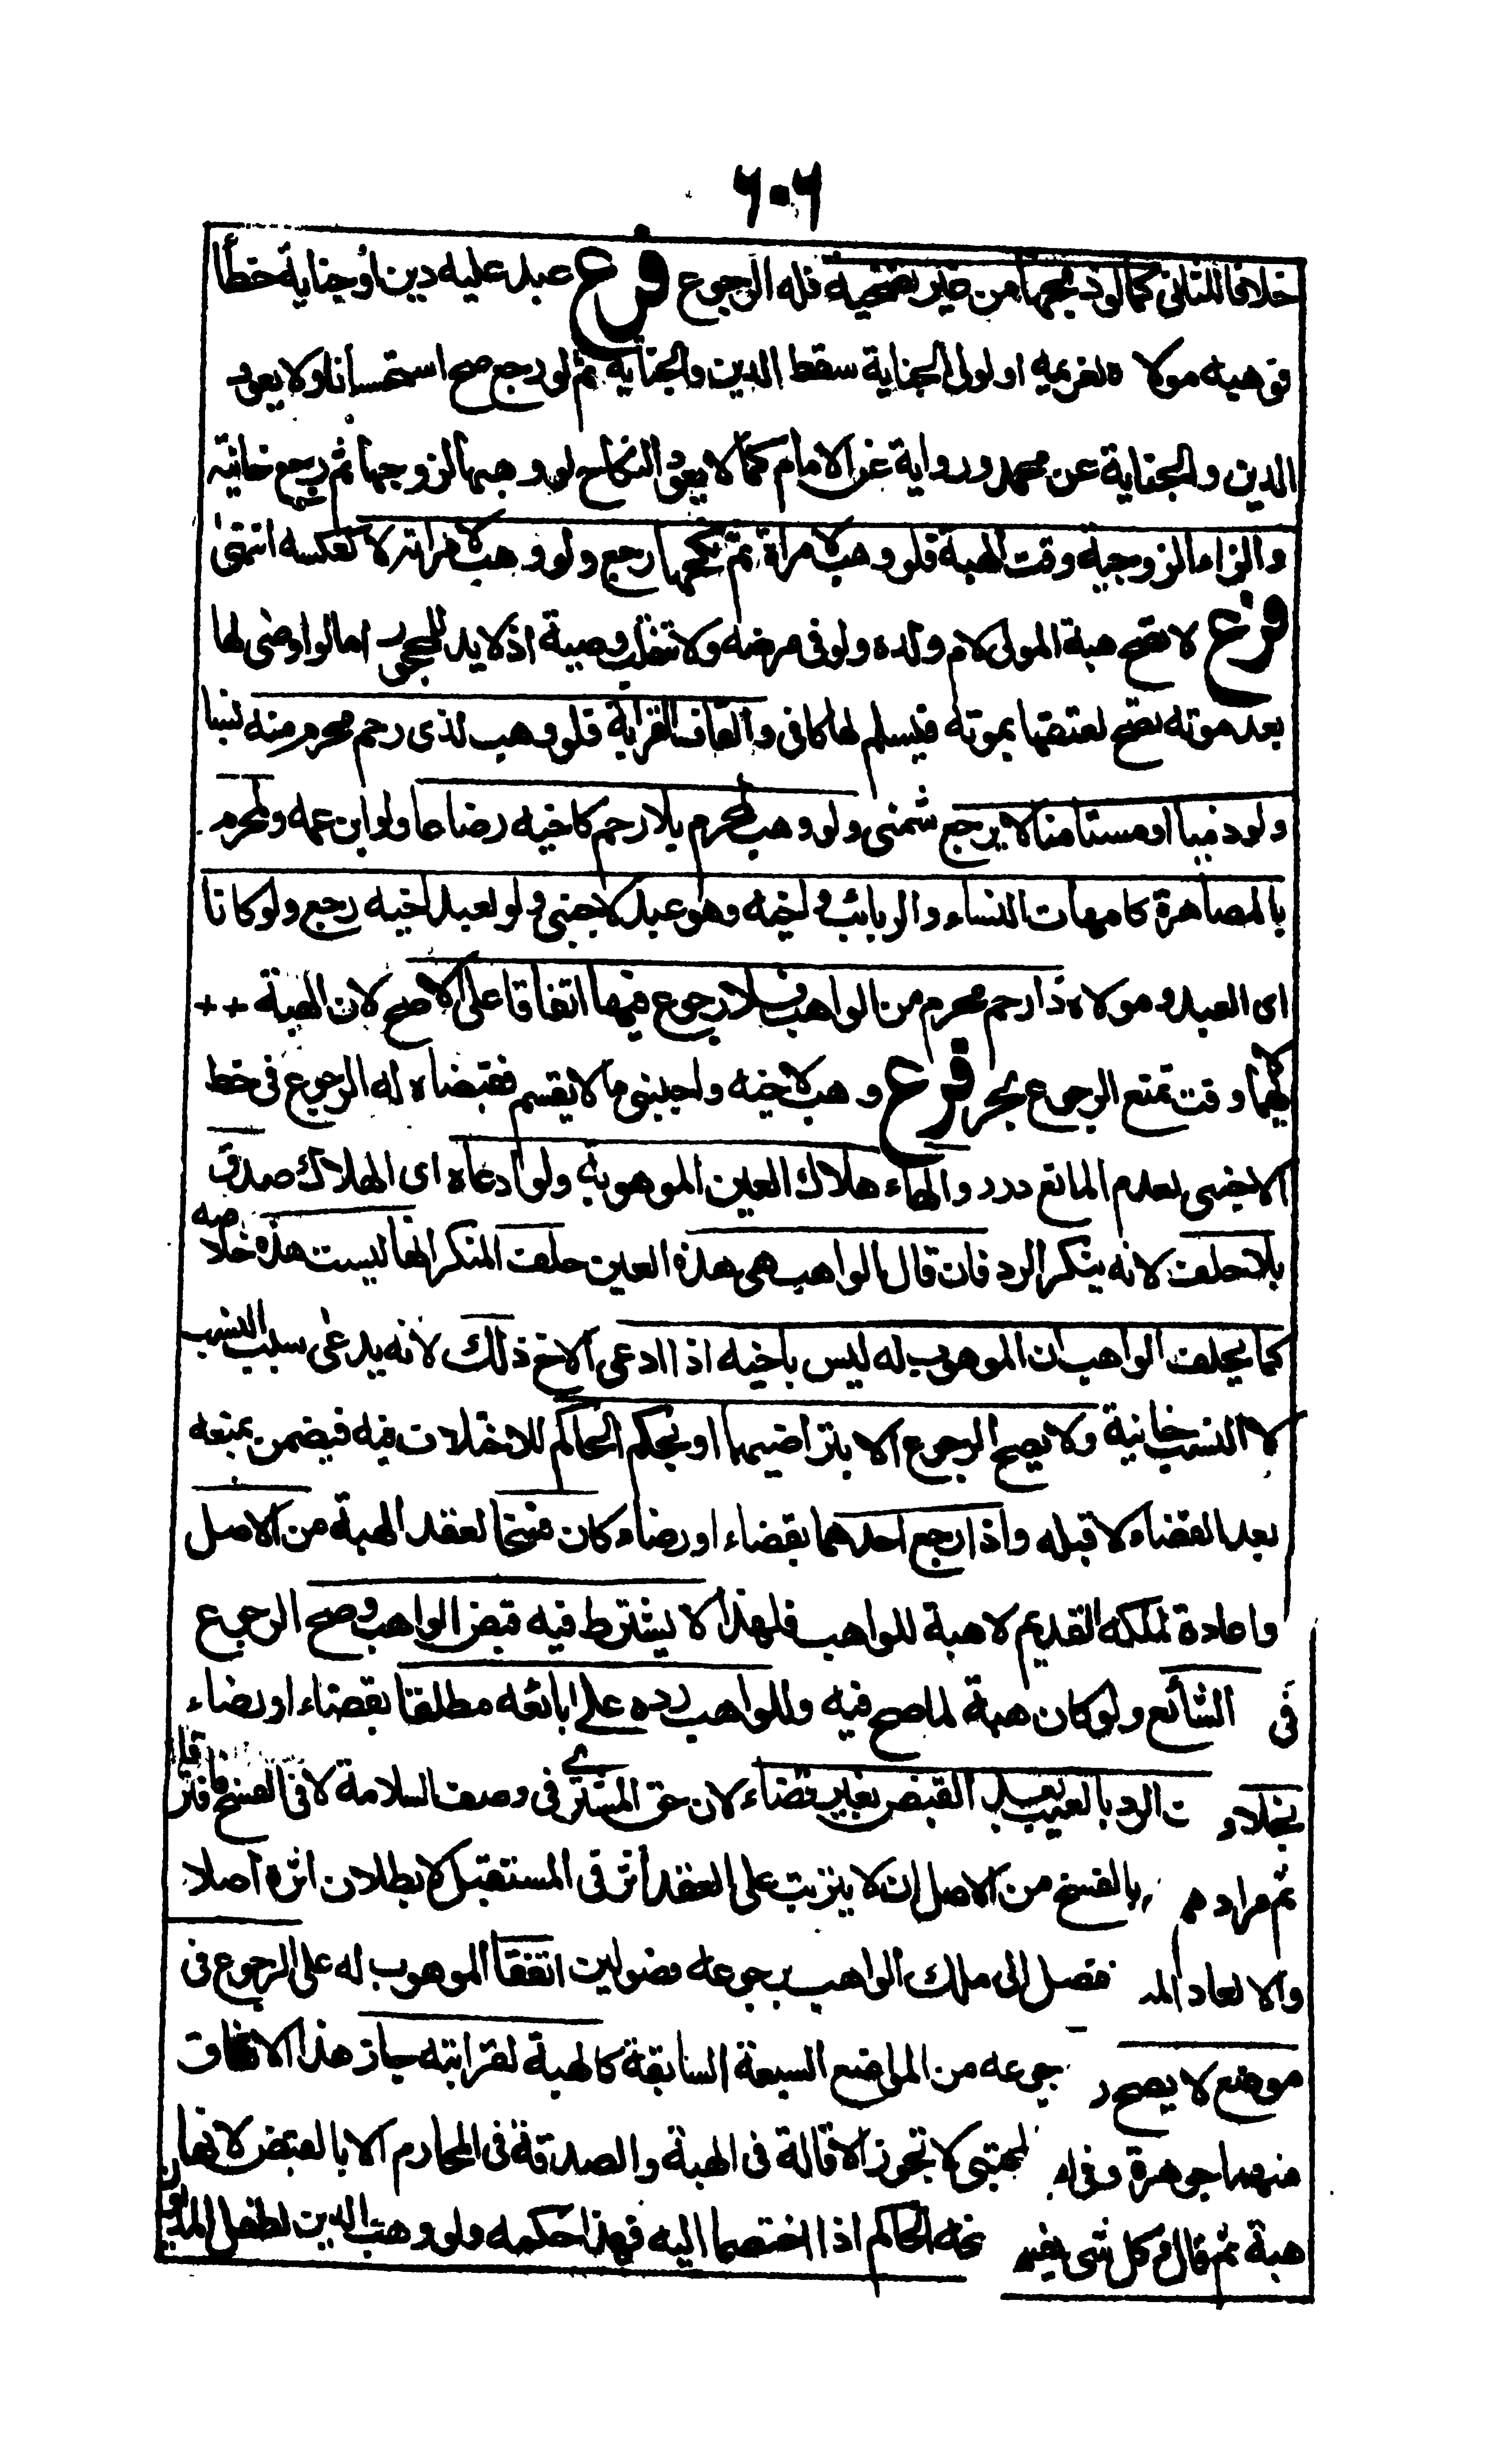 ٦٠٦
خلافا للثانى كما لو ذبحها من غير تضحية فله الرجوع فرع عبد عليه دين او جناية خطأ
فوهبه مولاه لغريمه او لولى الجناية سقط الدين والجناية ثم لو رجع صح استحسانا ولا يعود
الدين والجناية عن محمد ورواية عن الامام كما لا يعود النكاح لو وهبها لزوجها ثم رجع خانية
والزاء الزوجية وقت الهبة فلو وهب لامراة ثم نكحها رجع ولو وهب لامراته لا كعكسه انتهى
فرع لا تصح هبة المولى لام ولده ولو فى مرضه ولا تنقلب وصية اذ لا يد للمحجور اما لو اوصى لها
بعد موته تصح لعتقها بموته فيسلم لها كافى والقاف القرابة فلو وهب لذى رحم محرم منه نسبا
ولو ذميا او مستامنا لا يرجع شمنى ولو وهب لمحرم بلا رحم كاخيه رضاعا ولو ابن عمه ولمحرم
بالمصاهرة كامهات النساء والربائب ولاخيه وهو عبد لاجنبى ولو لعبد اخيه رجع ولو كانا
اى العبد ومولاه ذا رحم محرم من الواهب فلا رجوع فيها اتفاقا على الاصح لان الهبة
لايهما وقت تمنع الرجوع بحر فرع وهب لاخيه واجنبى ما لا يقسم فقبضاه له الرجوع فى حظ
الاجنبى لعدم المانع درر والهاء هلاك العين الموهوبة ولو ادعاه اى الهلاك صدق
بلا حلف لانه ينكر الرد فان قال الواهب هى هذه العين حلف المنكر انها ليست هذه خلاصه
كما يحلف الواهب ان الموهوب له ليس باخيه اذا ادعى الاخ ذلك لانه يدعى سبب النسب
لا النسب خانية ولا يصح الرجوع الا بتراضيهما او بحكم الحاكم للاختلاف فيه فيضمن بمنعه
بعد القضاء لا قبله واذا رجع احدهما بقضاء او رضاء كان فسخا لعقد الهبة من الاصل
واعادة لملكه القديم لا هبة للواهب فلهذا لا يشترط فيه قبض الواهب وصح الرجوع
فى الشائع ولو كان هبة لما صح فيه وللواهب رده على بائعه مطلقا بقضاء او رضاء
بخلاف الرد بالعيب بعد القبض بغير قضاء لان حق المشترى فى وصف السلامة لا فى الفسخ فافترقا
ثم مرادهم بالفسخ من الاصل ان لا يترتب على العقد اثر فى المستقبل لا بطلان اثره اصلا
والا لعاد المنفصل الى ملك الواهب برجوعه فصولين اتفقا الموهوب له على الرجوع فى
موضع لا يصح رجوعه من المواضع السبعة السابقة كالهبة لقرابته جاز هذا الاتفاق
منهما جوهرة وفى المجتبى لا تجوز الاقالة فى الهبة والصدقة فى المحارم الا بالقبض لانها
هبة ثم قال وكل شى يفسخه الحاكم اذا اختصما اليه فهذا حكمه ولو وهب الدين لطفل المديون